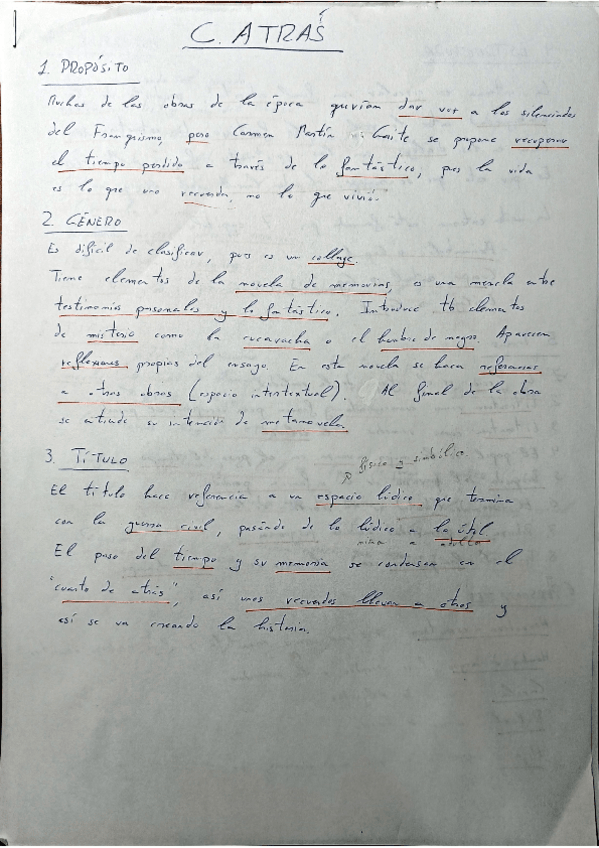 C. ATRÁS
1. PROPÓSITO
Muchas de las obras de la época querían dar voz a los silenciados
del Franquismo, pero Carmen Martín Gaite se propone recuperar
el tiempo perdido a través de lo fantástico, pues la vida
es lo que uno recuerda, no lo que vivió.
2. GÉNERO
Es difícil de clasificar, pues es un collage.
Tiene elementos de la novela de memorias, es una mezcla entre
testimonios personales y lo fantástico. Introduce tb elementos
de misterio como la cucaracha o el hombre de negro. Aparecen
reflexiones propias del ensayo. En esta novela se hacen referencias
a otras obras (espacio intertextual). Al final de la obra
se entiende su intención de metanovela.
3. TÍTULO
físico = simbólico
El título hace referencia a un espacio lúdico que termina
con la guerra civil, pasando de lo lúdico a lo útil
niña a adulta
El paso del tiempo y su memoria se condensan en el
"cuarto de atrás", así unos recuerdos llevan a otros y
así se va creando la historia.